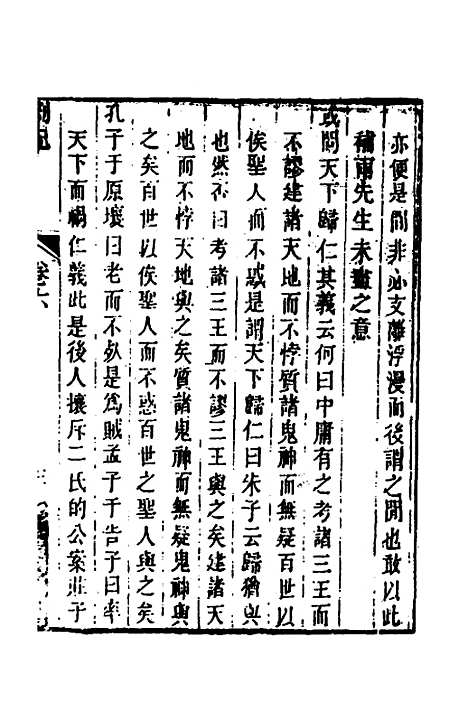 亦便是閒非必支離浮漫而後謂之閒也敢以此
補兩先生未盡之意
或問天下歸仁其義云何曰中庸有之考諸三王而
不謬建諸天地而不悖質諸鬼神而無疑百世以
俟聖人而不惑是謂天下歸仁曰朱子云歸猶與
也然否曰考諸三王而不謬三王與之矣建諸天
地而不悖天地與之矣質諸鬼神而無疑鬼神與
之矣百世以俟聖人而不惑百世之聖人與之矣
孔子于原壤曰老而不死是為賊孟子于告子曰率
天下而禍仁義此是後人攘斥二氏的公案莊子
劄記
卷之六
三